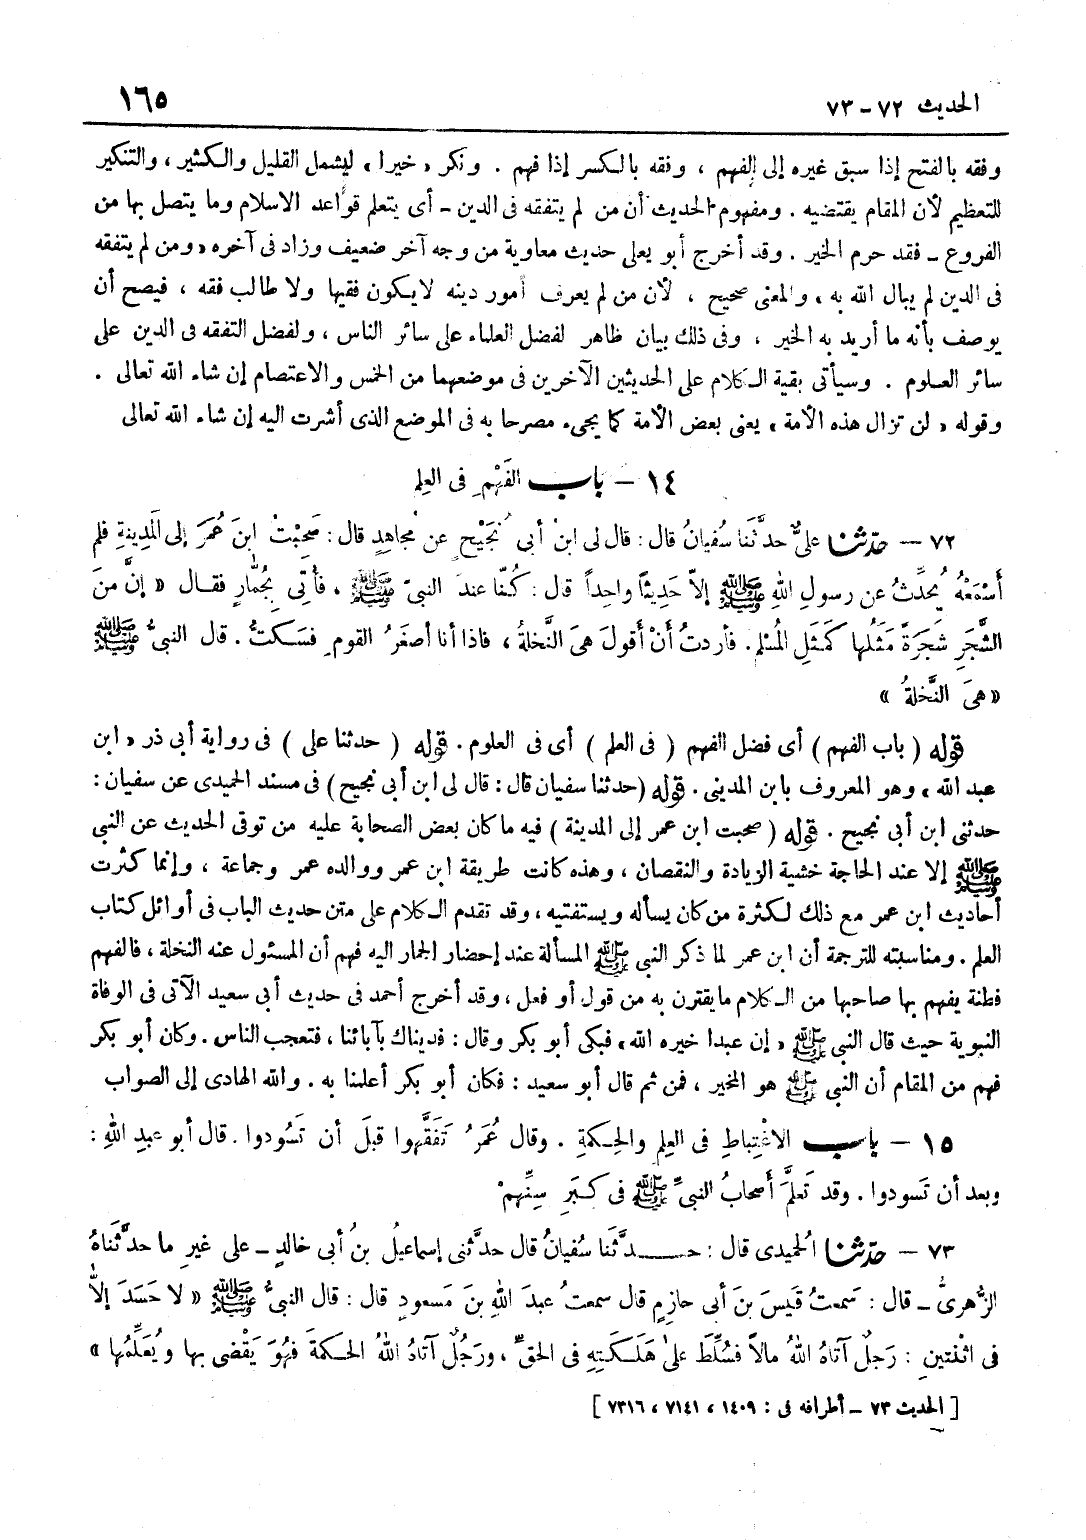 الحديث ٧٢ – ٧٣
١٦٥
وفقه بالفتح إذا سبق غيره إلى الفهم ، وفقه بالكسر إذا فهم . ونكر « خيرا » ليشمل القليل والكثير ، والتنكير
للتعظيم لأن المقام يقتضيه . ومفهوم الحديث أن من لم يتفقه فى الدين – أى يتعلم قواعد الاسلام وما يتصل بها من
الفروع – فقد حرم الخير . وقد أخرج أبو يعلى حديث معاوية من وجه آخر ضعيف وزاد فى آخره « ومن لم يتفقه
فى الدين لم يبال الله به » والمعنى صحيح ، لأن من لم يعرف أمور دينه لا يكون فقيها ولا طالب فقه ، فيصح أن
يوصف بأنه ما أريد به الخير ، وفى ذلك بيان ظاهر لفضل العلماء على سائر الناس ، ولفضل التفقه فى الدين على
سائر العلوم . وسيأتى بقية الكلام على الحديثين الآخرين فى موضعهما من الخمس والاعتصام إن شاء الله تعالى .
وقوله « لن تزال هذه الأمة » يعنى بعض الأمة كما يجىء مصرحا به فى الموضع الذى أشرت اليه إن شاء الله تعالى
١٤ – باب الفَهْمِ فى العِلم
٧٢ – حدّثنا علىٌّ حدَّثَنا سُفيانُ قال : قال لى ابنُ أبى نَجيْحٍ عن مجاهِدٍ قال : صَحِبْتُ ابنَ عُمَرَ إلى المَدِينةِ فلم
أَسْمَعْهُ يُحدِّثُ عن رسولِ اللهِ ﷺ إلاّ حَدِيثاً واحِداً قال : كُنّا عندَ النبىّ ﷺ ، فأُتِّى بِجُمَّارٍ فقـال « إنَّ منَ
الشَّجَرِ شَجَرَةً مَثَلُها كَمَثَلِ المُسْلمِ . فأردتُ أَنْ أَقولَ هىَ النَّخلةُ ، فاذا أنا أصغَرُ القومِ فسَكتُّ . قال النبىُّ ﷺ
« هىَ النَّخلةُ »
قوله ( باب الفهم ) أى فضل الفهم ( فى العلم ) أى فى العلوم . قوله ( حدثنا على ) فى رواية أبى ذر « ابن
عبد الله » وهو المعروف بابن المدينى . قوله (حدثنا سفيان قال : قال لى ابن أبى نجيح ) فى مسند الحميدى عن سفيان :
حدثنى ابن أبى نجيح . قوله ( صحبت ابن عمر إلى المدينة ) فيه ما كان بعض الصحابة عليه من توقى الحديث عن النبى
ﷺ إلا عند الحاجة خشية الزيادة والنقصان ، وهذه كانت طريقة ابن عمر ووالده عمر وجماعة ، وإنما كثرت
أحاديث ابن عمر مع ذلك لكثرة من كان يسأله ويستفتيه ، وقد تقدم الكلام على متن حديث الباب فى أوائل كتاب
العلم . ومناسبته للترجمة أن ابن عمر لما ذكر النبى ﷺ المسألة عند إحضار الجمار اليه فهم أن المسئول عنه النخلة ، فالفهم
فطنة يفهم بها صاحبها من الكلام ما يقترن به من قول أو فعل ، وقد أخرج أحمد فى حديث أبى سعيد الآتى فى الوفاة
النبوية حيث قال النبى ﷺ « إن عبدا خيره الله » فبكى أبو بكر وقال : فديناك بآبائنا ، فتعجب الناس . وكان أبو بكر
فهم من المقام أن النبى ﷺ هو المخير ، فمن ثم قال أبو سعيد : فكان أبو بكر أعلمنا به . والله الهادى إلى الصواب
١٥ – باب الاغْتِباطِ فى العِلمِ والحِكمةِ . وقال عُمَرُ تَفَقَّهوا قبلَ أن تَسُودوا . قال أبو عبدِ اللهِ :
وبعد أن تَسودوا . وقد تَعلمَّ أَصحابُ النبىِّ ﷺ فى كِبَرِ سِنِّهِمْ
٧٣ – حدّثنا الحُميدى قال : حـدَّثَنا سُفيانُ قال حدَّثنى إسماعيلُ بنُ أبى خالدٍ – على غيرِ ما حدَّثَناهُ
الزُّهرىُّ – قال : سَمعتُ قَيسَ بنَ أبى حازمٍ قال سمعتُ عبدَ اللهِ بنَ مَسعودٍ قال : قال النبىُّ ﷺ « لا حَسَدَ إلاَّ
فى اثنتينِ : رَجلٌ آتاهُ اللهُ مالاً فسُلِّطَ علىٰ هَلَكَتِهِ فى الحقِّ ، ورَجُلٌ آتاهُ اللهُ الحكمةَ فهُوَ يَقْضى بها ويُعَلِّمُها »
[ الحديث ٧٣ – أطرافه فى : ١٤٠٩ ، ٧١٤١ ، ٧٣١٦ ]